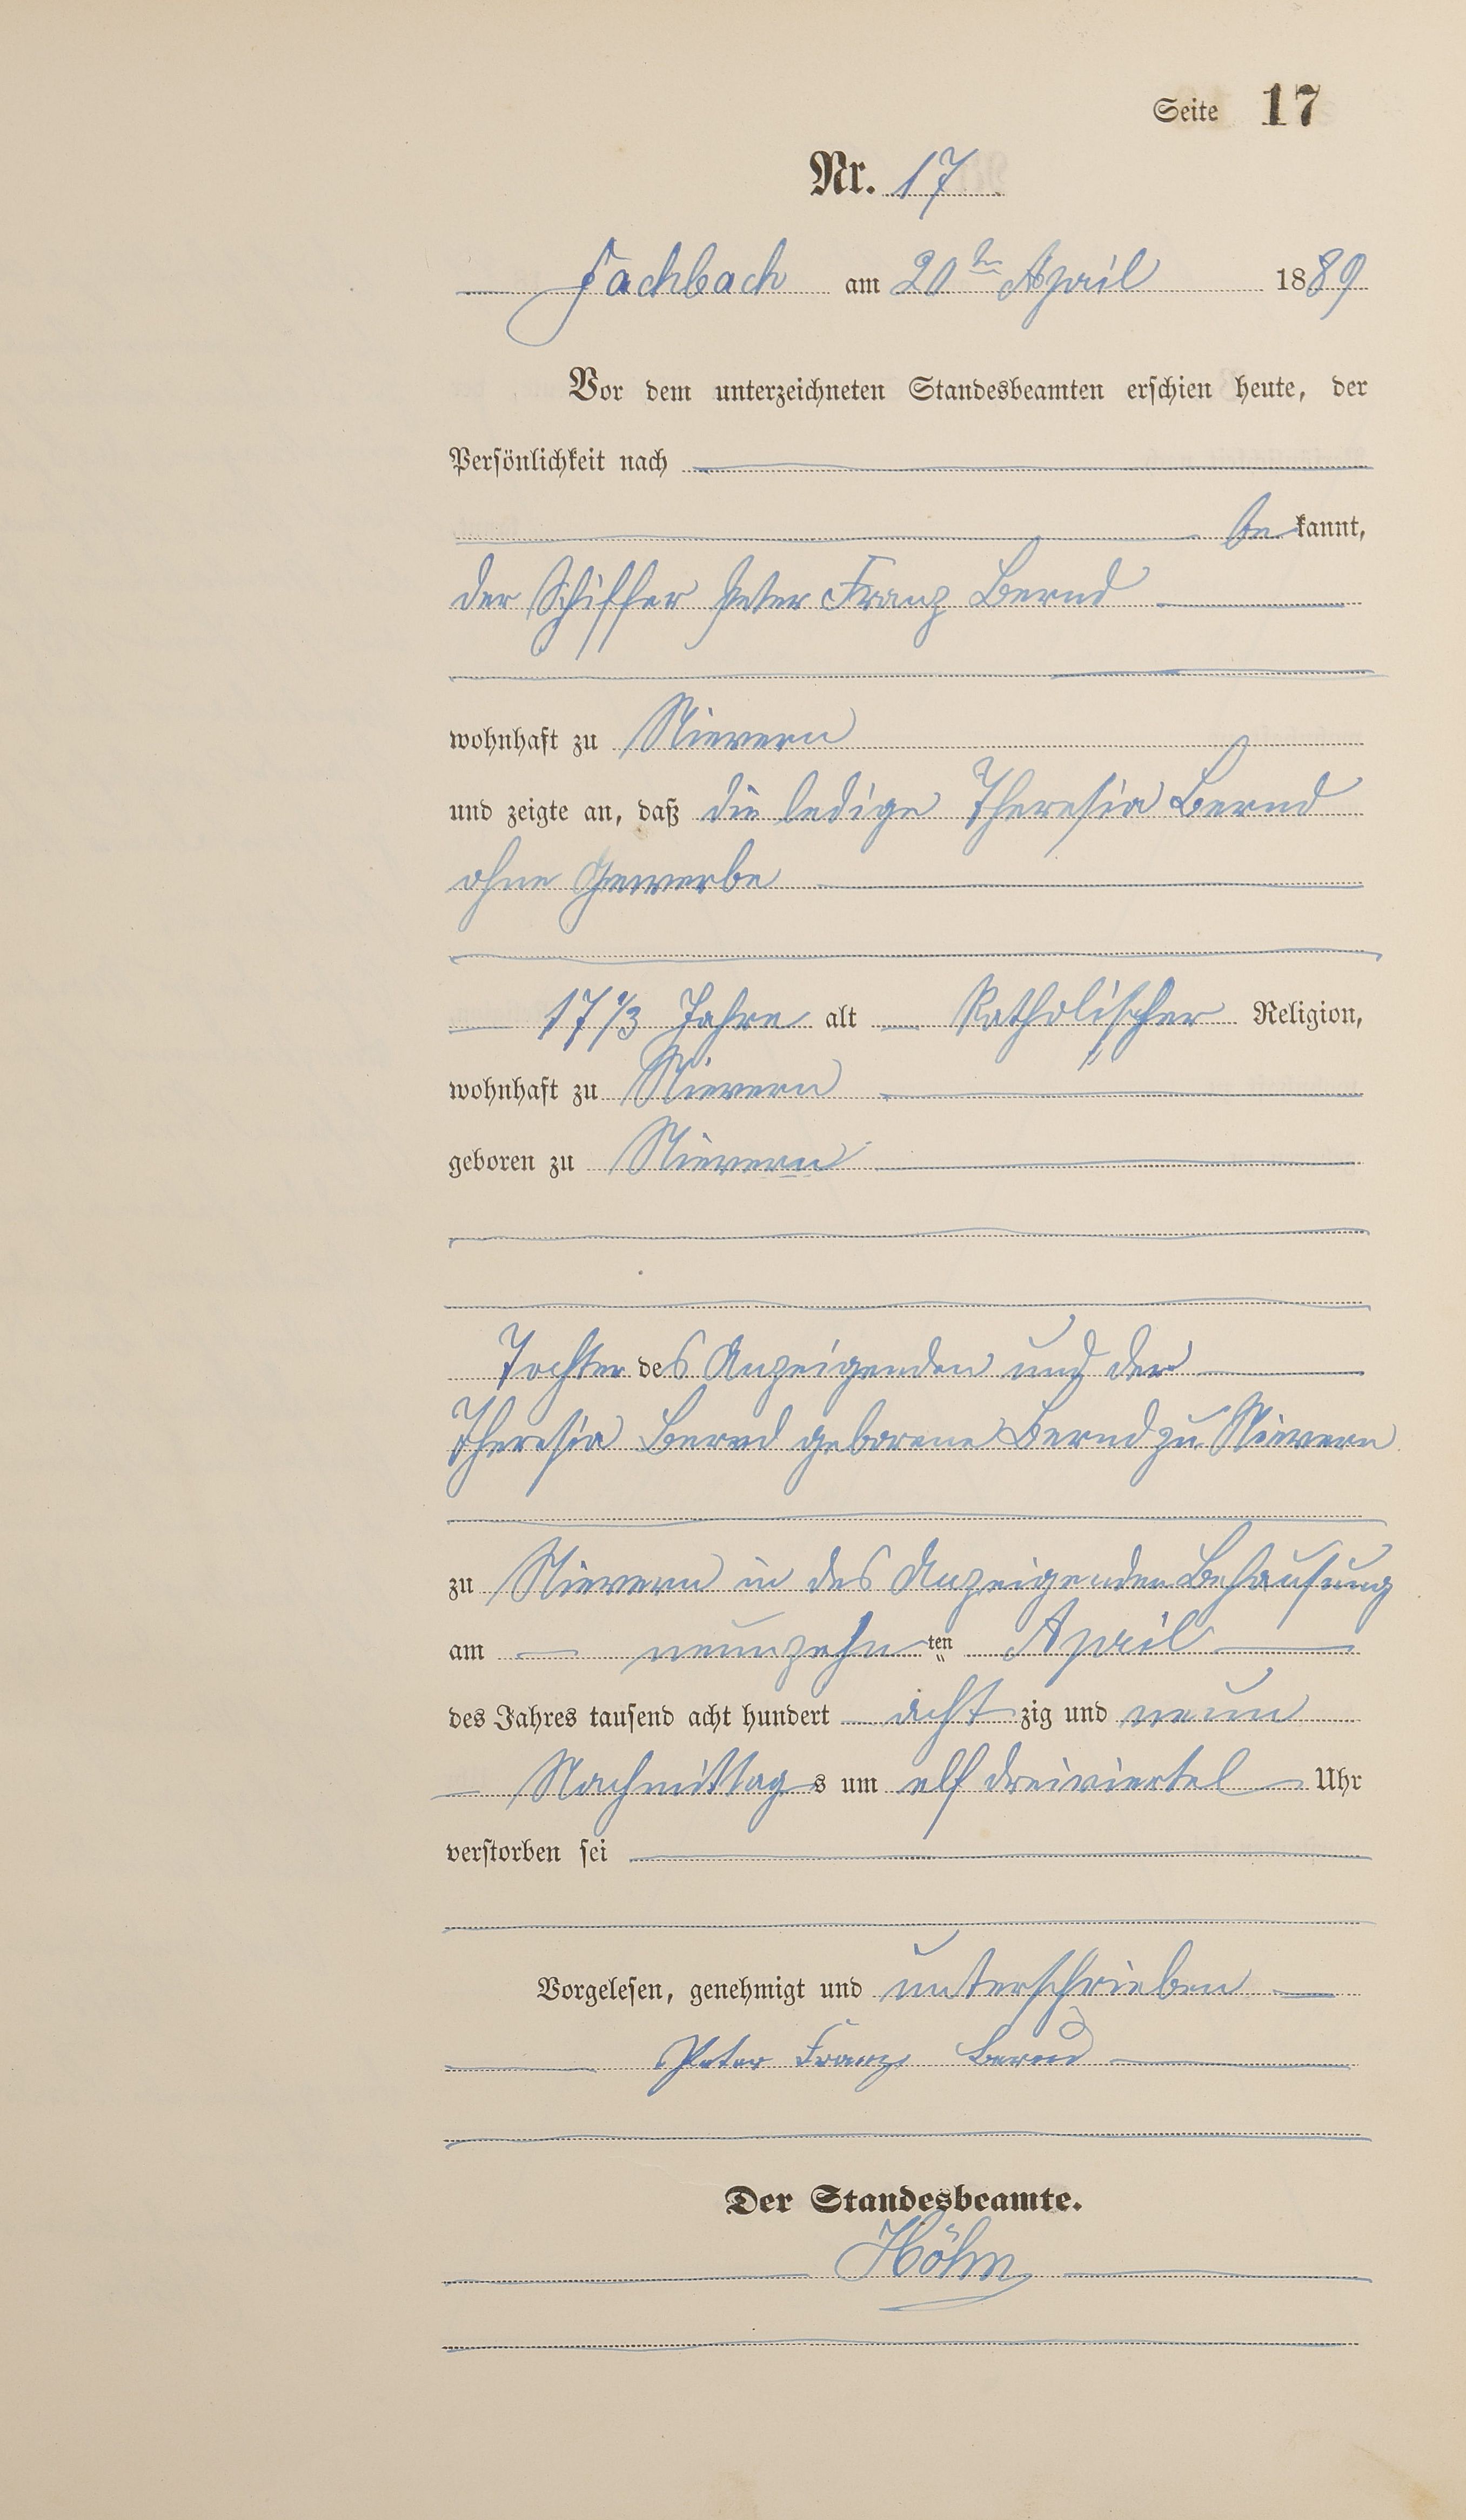 Seite 17
Nr. 17
Fachbach am 20ten April 1889
Vor dem unterzeichneten Standesbeamten erschien heute, der
Persönlichkeit nach
be kannt,
der Schiffer Peter Franz Bernd
wohnhaft zu Nievern
und zeigte an, daß die ledige Theresia Bernd
ohne Gewerbe
17 1/3 Jahre alt Katholischer Religion,
wohnhaft zu Nievern
geboren zu Nievern
Tochter des Anzeigenden und der
Theresia Bernd geborene Bernd zu Nievern
zu Nievern in des Anzeigenden Behausung
am neunzehn ten April
des Jahres tausend acht hundert acht zig und neun
Nachmittags um elf dreiviertel Uhr
verstorben sei
Vorgelesen, genehmigt und unterschrieben
Peter Franz Bernd
Der Standesbeamte.
Höhn